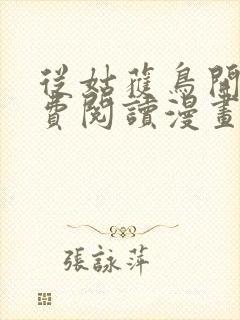 從姑獲鳥開
費閱讀漫畫
張詠萍